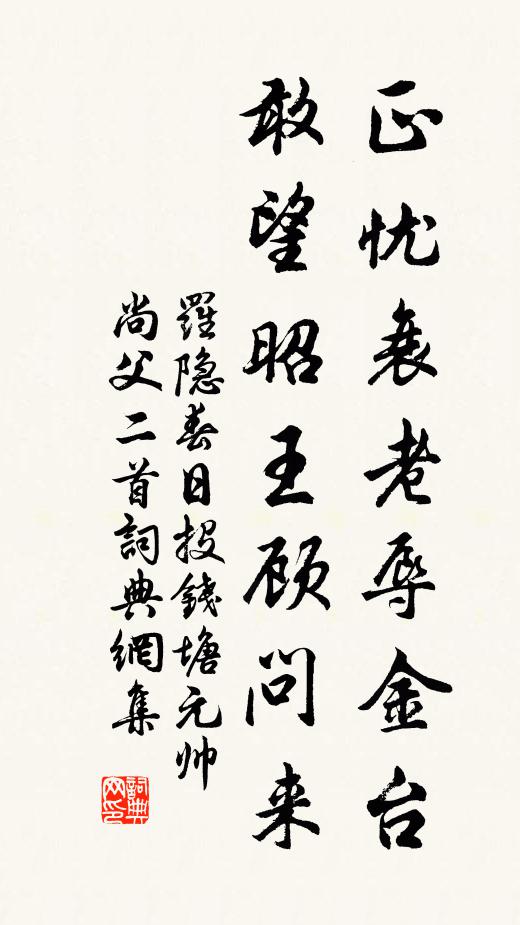 正忧衰老辱金台
敢望昭王顾问来
羅隐春日投錢塘元帅
尚父二首詞典網集
詞典网印